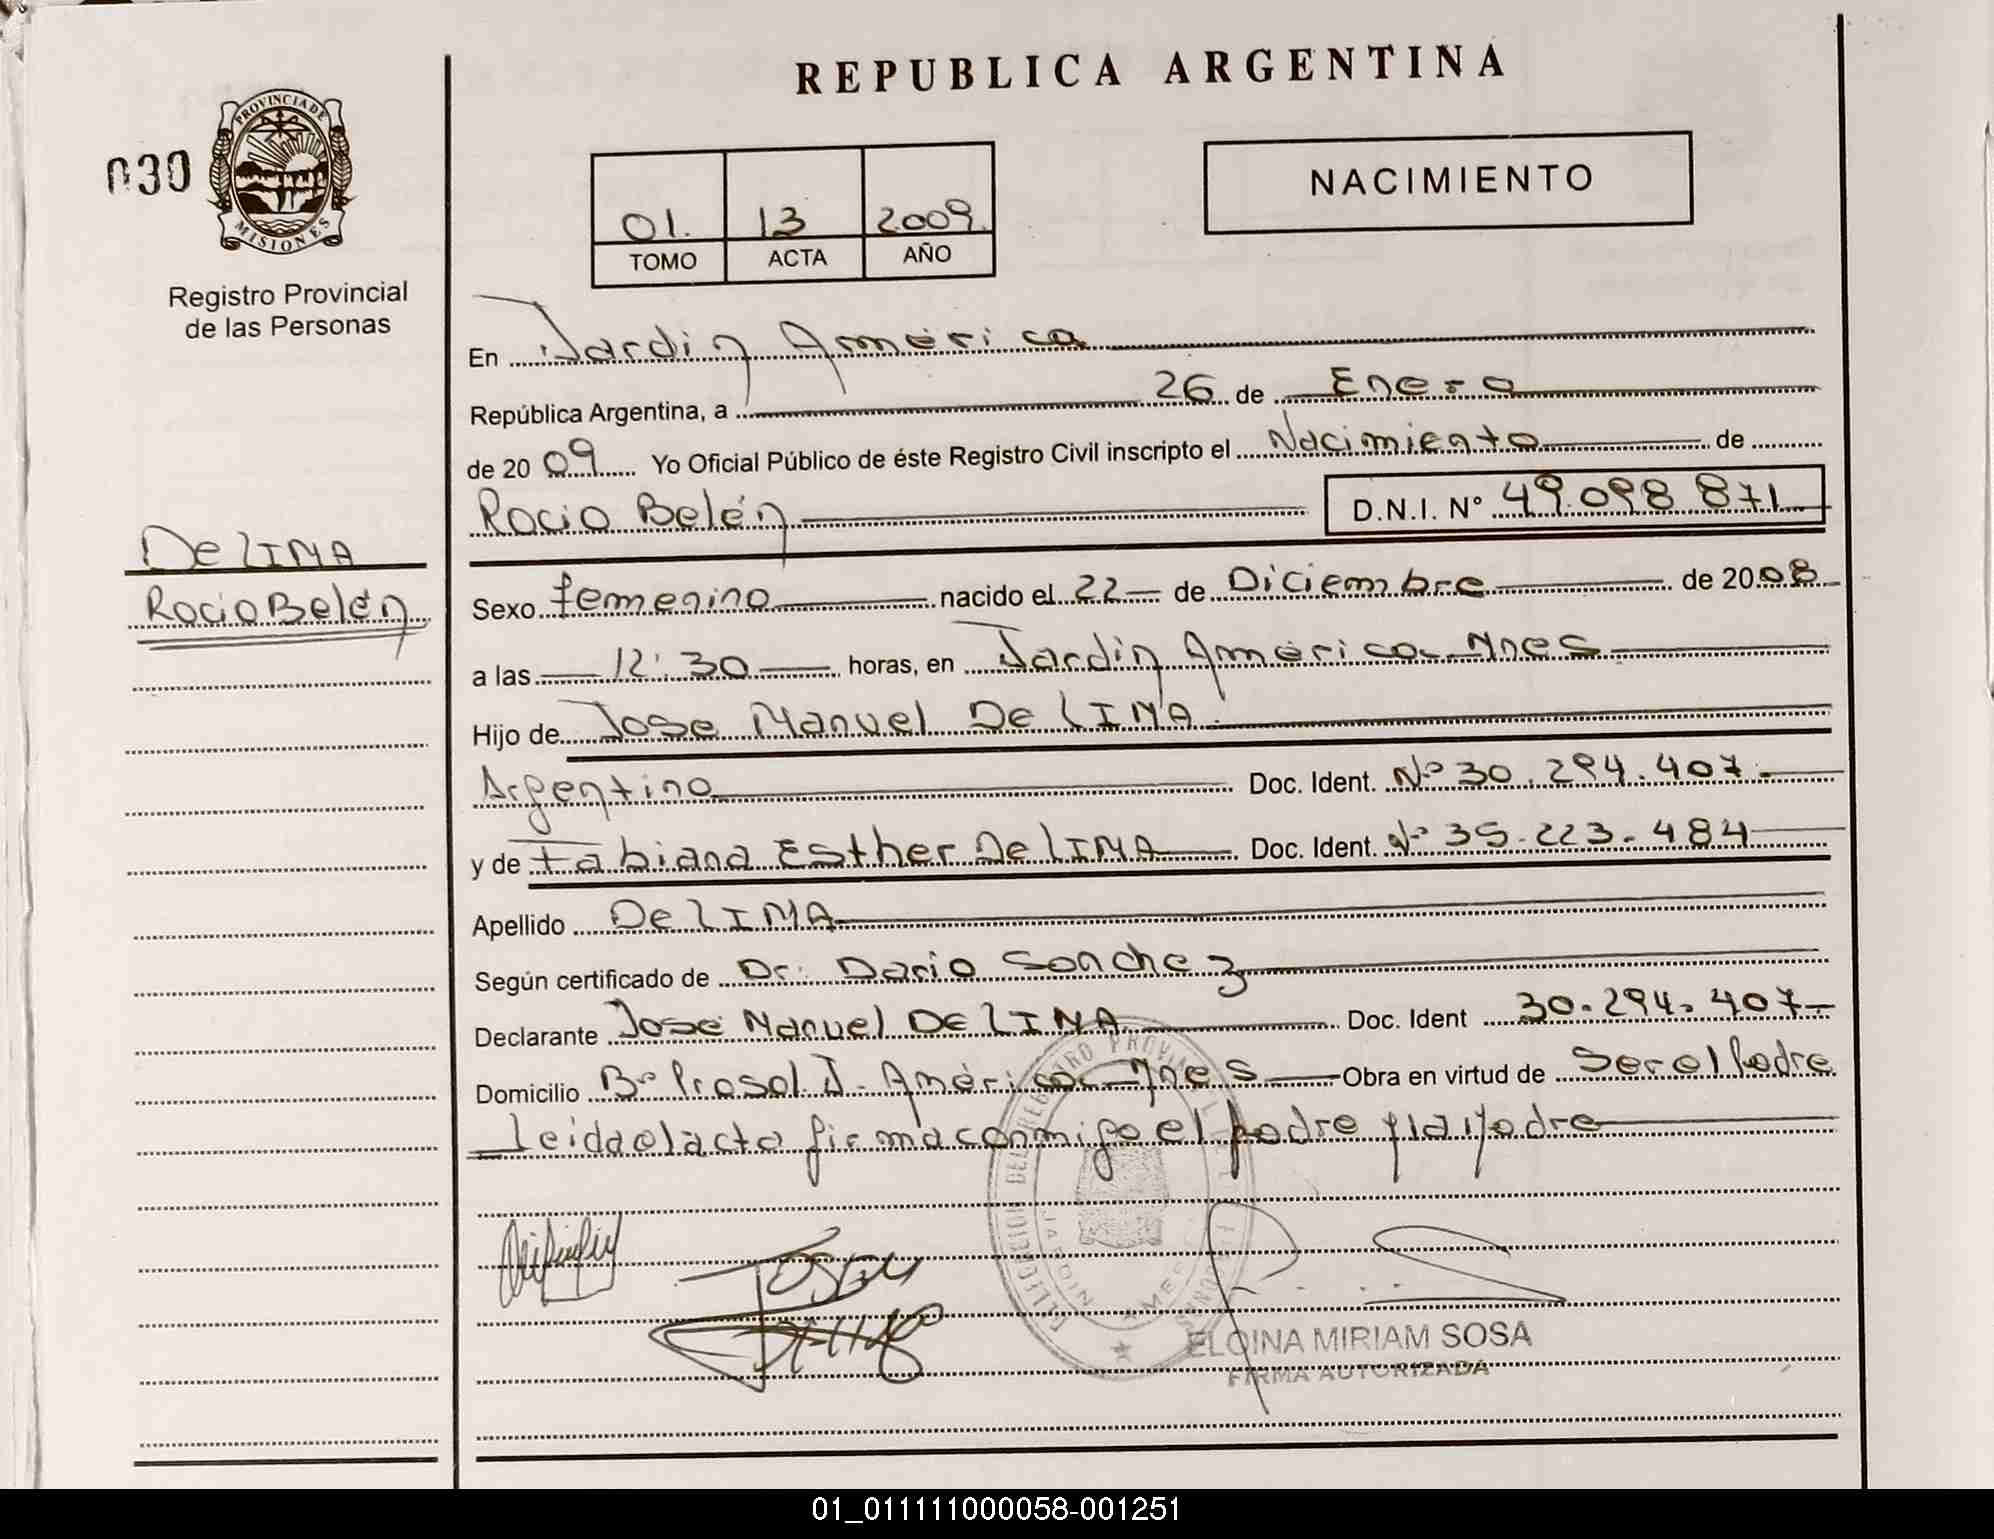 REPUBLICA ARGENTINA
030
PROVINCIA DE
MISIONES
Registro Provincial
de las Personas
01. 13 2009.
TOMO ACTA AÑO
NACIMIENTO
En Jardin América
República Argentina, a 26 de Enero
de 2009 Yo Oficial Público de éste Registro Civil inscripto el Nacimiento de
Rocio Belén D.N.I. Nº 49.098.871
De LIMA
Rocio Belén
Sexo femenino nacido el 22 de Diciembre de 2008
a las 12:30 horas, en Jardin América Mnes
Hijo de Jose Manuel De LIMA
Argentino Doc. Ident. Nº 30.294.407.
y de Fabiana Esther De LIMA Doc. Ident. Nº 35.223.484
Apellido De LIMA
Según certificado de Dr. Dario Sanchez
Declarante Jose Manuel DE LIMA Doc. Ident 30.294.407
Domicilio Bº Prosol J. América Mnes Obra en virtud de Ser el Padre
Leida el acta firma conmigo el padre y la Madre
ELOINA MIRIAM SOSA
FIRMA AUTORIZADA
01_011111000058-001251